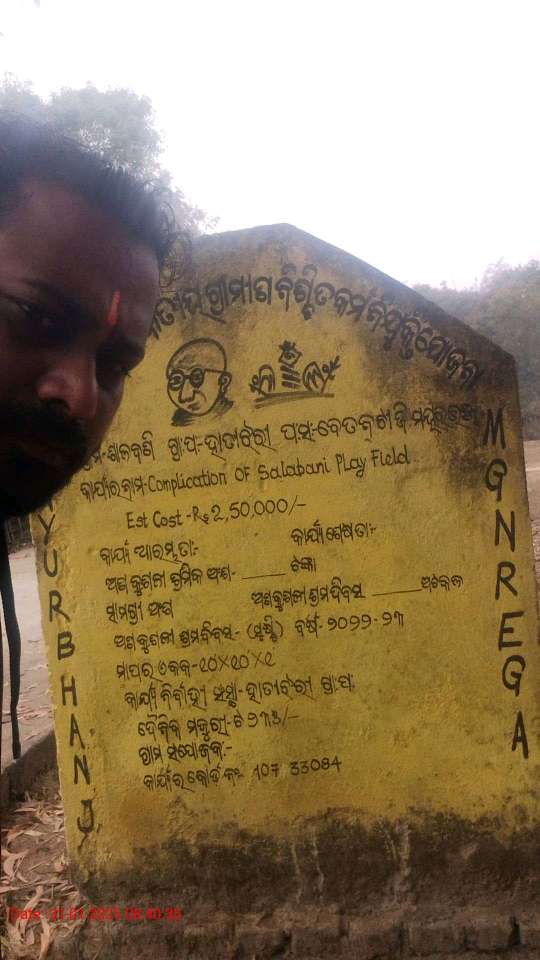 ଜାତୀୟ ଗ୍ରାମୀଣ ନିଶ୍ଚିତ କର୍ମ ନିଯୁକ୍ତି ଯୋଜନା
ଗ୍ରାମ-ଶାଳବଣି ଗ୍ରା.ପ-ହାତୀବାରୀ ପ.ସ-ବେତନଟୀ ଜି
କାର୍ଯ୍ୟର ନାମ-Complication OF Salabani Play Field
Est Cost-Rs 2,50,000/-
କାର୍ଯ୍ୟ ଆରମ୍ଭ ତା:- କାର୍ଯ୍ୟ ଶେଷ ତା:-
ଅଣ କୁଶଳୀ ଶ୍ରମିକ ଅଂଶ- ଟଙ୍କା
ସାମଗ୍ରୀ ଅଂଶ ଅଣକୁଶଳୀ ଶ୍ରମଦିବସ
ଅଣକୁଶଳୀ ଶ୍ରମଦିବସ:- (ସୃଷ୍ଟି) ବର୍ଷ-୨୦୨୨-୨୩
ମାପର ଏକକ-୧୦×୧୦×୧
କାର୍ଯ୍ୟ ନିର୍ବାହୀ ସଂସ୍ଥା-ହାତୀବାରୀ ଗ୍ରା.ପ.
ଦୈନିକ ମଜୁରୀ-ଟ
ଗ୍ରାମ ସଂଯୋଜକ:-
କାର୍ଯ୍ୟର କୋର୍ଡ ନଂ 107 33084
YURBHANJ
MGNREGA